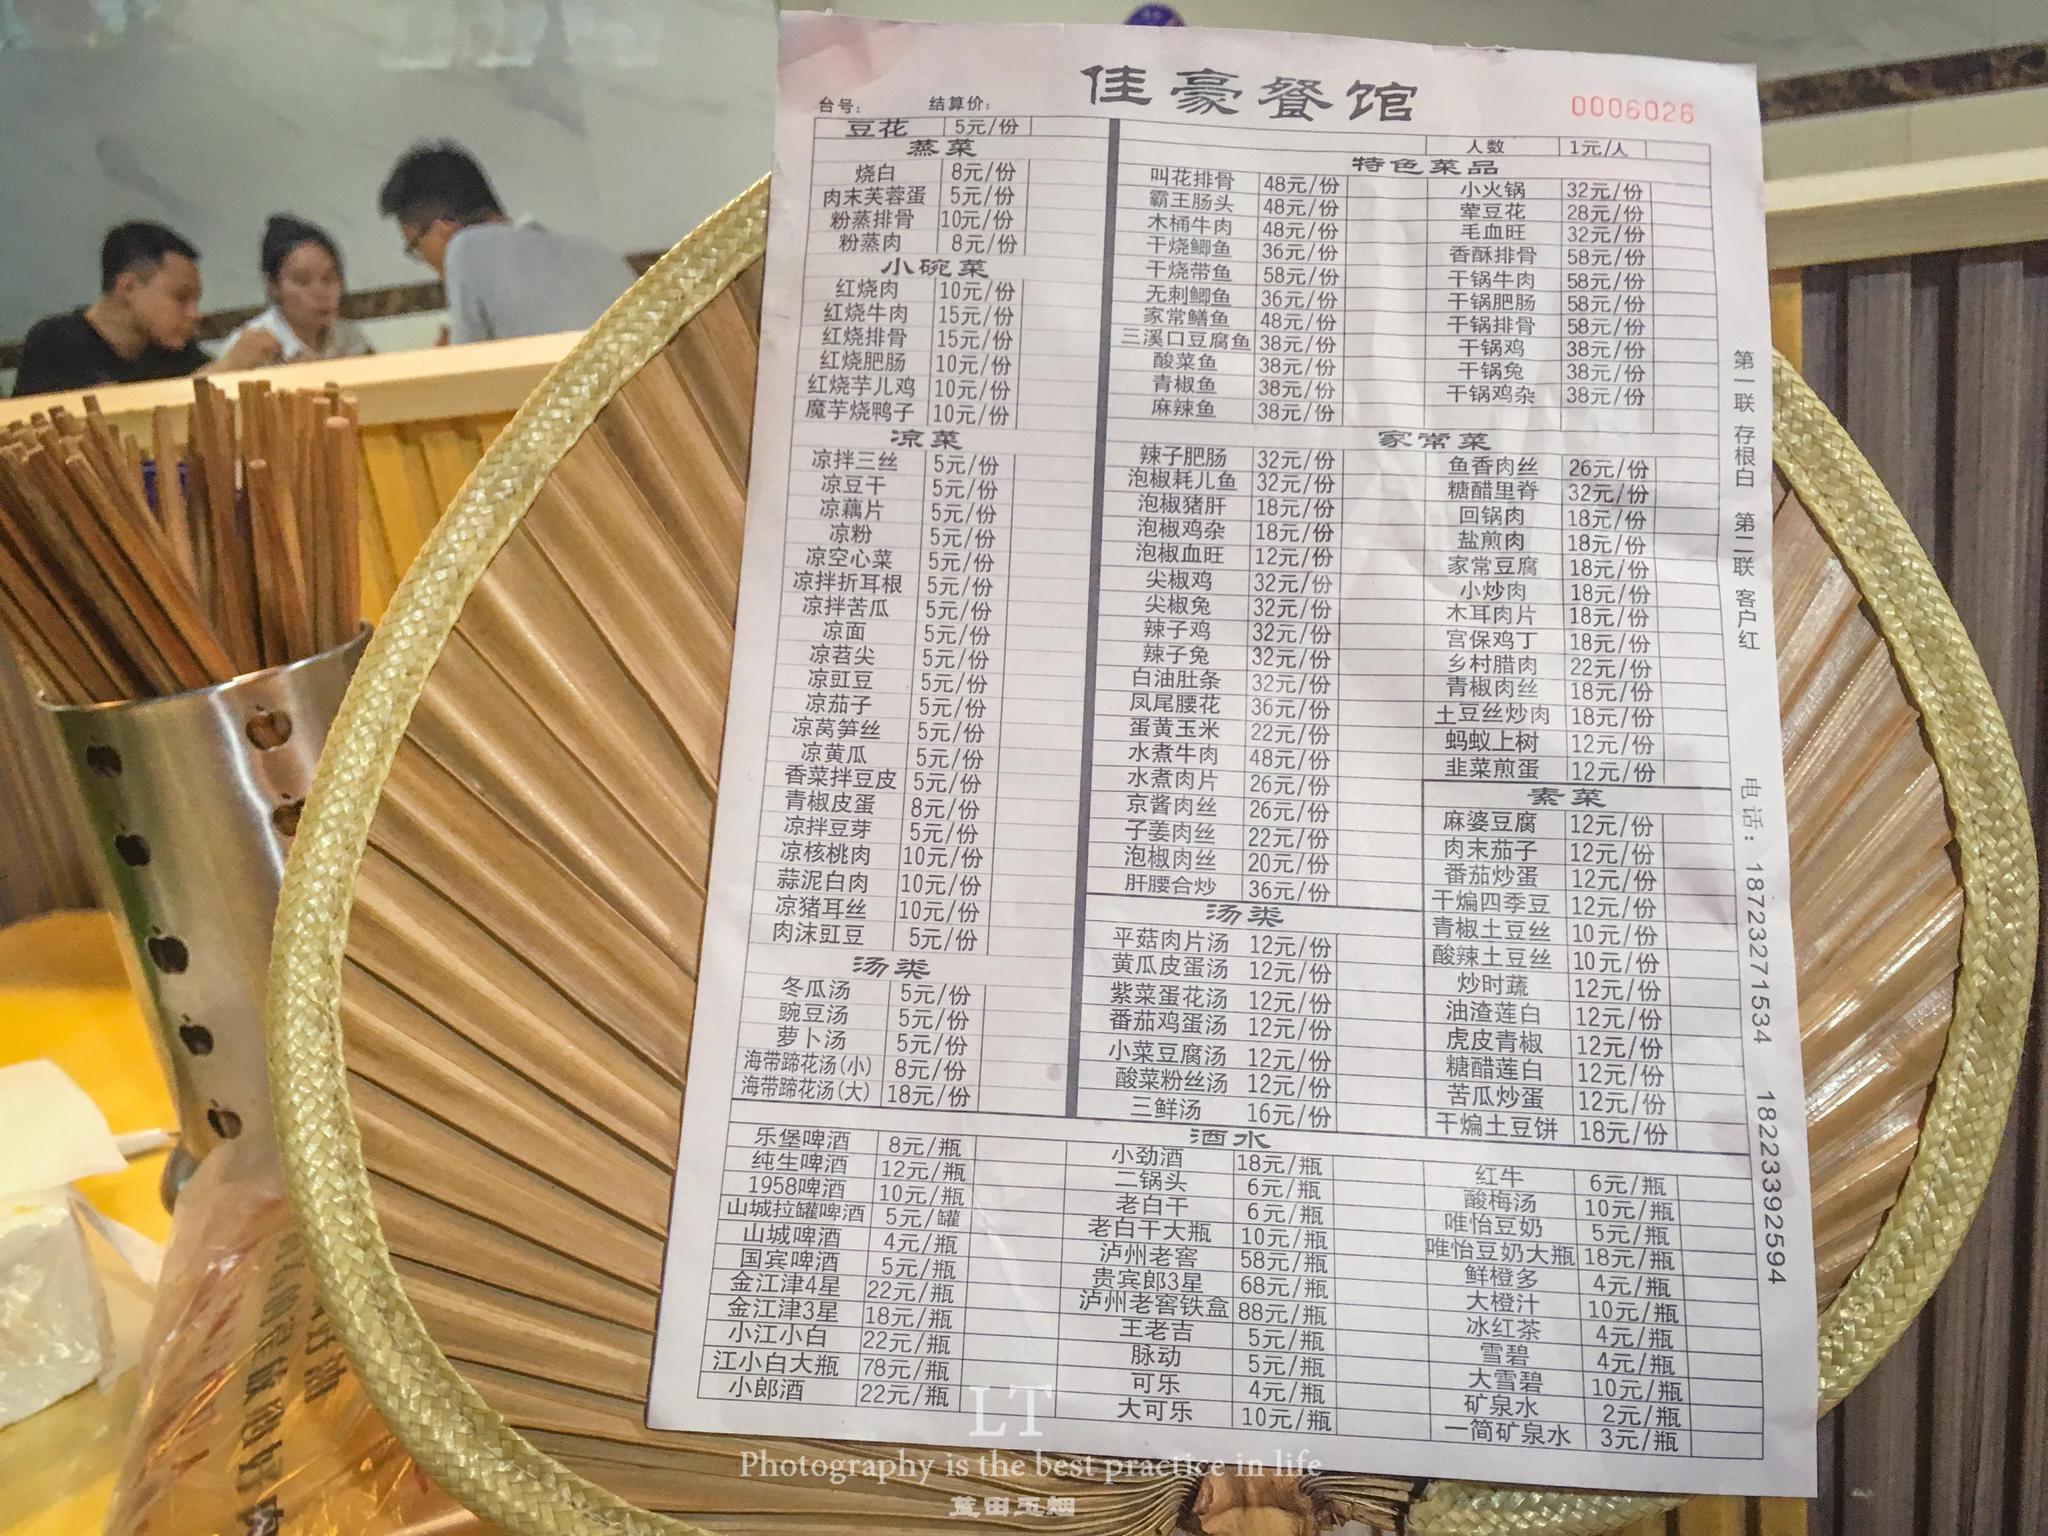 佳豪餐馆
台号: 结算价: 0006026
豆花 5元/份
蒸菜
烧白 8元/份
肉末芙蓉蛋 5元/份
粉蒸排骨 10元/份
粉蒸肉 8元/份
小碗菜
红烧肉 10元/份
红烧牛肉 15元/份
红烧排骨 15元/份
红烧肥肠 10元/份
红烧芋儿鸡 10元/份
魔芋烧鸭子 10元/份
凉菜
凉拌三丝 5元/份
凉豆干 5元/份
凉藕片 5元/份
凉粉 5元/份
凉空心菜 5元/份
凉拌折耳根 5元/份
凉拌苦瓜 5元/份
凉面 5元/份
凉苕尖 5元/份
凉豇豆 5元/份
凉茄子 5元/份
凉莴笋丝 5元/份
凉黄瓜 5元/份
香菜拌豆皮 5元/份
青椒皮蛋 8元/份
凉拌豆芽 5元/份
凉核桃肉 10元/份
蒜泥白肉 10元/份
凉猪耳丝 10元/份
肉沫豇豆 5元/份
汤类
冬瓜汤 5元/份
豌豆汤 5元/份
萝卜汤 5元/份
海带蹄花汤(小) 8元/份
海带蹄花汤(大) 18元/份
人数 1元/人
特色菜品
叫花排骨 48元/份
霸王肠头 48元/份
木桶牛肉 48元/份
干烧鲫鱼 36元/份
干烧带鱼 58元/份
无刺鲫鱼 36元/份
家常鳝鱼 48元/份
三溪口豆腐鱼 38元/份
酸菜鱼 38元/份
青椒鱼 38元/份
麻辣鱼 38元/份
小火锅 32元/份
荤豆花 28元/份
毛血旺 32元/份
香酥排骨 58元/份
干锅牛肉 58元/份
干锅肥肠 58元/份
干锅排骨 58元/份
干锅鸡 38元/份
干锅兔 38元/份
干锅鸡杂 38元/份
家常菜
辣子肥肠 32元/份
泡椒耗儿鱼 32元/份
泡椒猪肝 18元/份
泡椒鸡杂 18元/份
泡椒血旺 12元/份
尖椒鸡 32元/份
尖椒兔 32元/份
辣子鸡 32元/份
辣子兔 32元/份
白油肚条 32元/份
凤尾腰花 36元/份
蛋黄玉米 22元/份
水煮牛肉 48元/份
水煮肉片 26元/份
京酱肉丝 26元/份
子姜肉丝 22元/份
泡椒肉丝 20元/份
肝腰合炒 36元/份
鱼香肉丝 26元/份
糖醋里脊 32元/份
回锅肉 18元/份
盐煎肉 18元/份
家常豆腐 18元/份
小炒肉 18元/份
木耳肉片 18元/份
宫保鸡丁 18元/份
乡村腊肉 22元/份
青椒肉丝 18元/份
土豆丝炒肉 18元/份
蚂蚁上树 12元/份
韭菜煎蛋 12元/份
汤类
平菇肉片汤 12元/份
黄瓜皮蛋汤 12元/份
紫菜蛋花汤 12元/份
番茄鸡蛋汤 12元/份
小菜豆腐汤 12元/份
酸菜粉丝汤 12元/份
三鲜汤 16元/份
素菜
麻婆豆腐 12元/份
肉末茄子 12元/份
番茄炒蛋 12元/份
干煸四季豆 12元/份
青椒土豆丝 10元/份
酸辣土豆丝 10元/份
炒时蔬 12元/份
油渣莲白 12元/份
虎皮青椒 12元/份
糖醋莲白 12元/份
苦瓜炒蛋 12元/份
干煸土豆饼 18元/份
酒水
乐堡啤酒 8元/瓶
纯生啤酒 12元/瓶
1958啤酒 10元/瓶
山城拉罐啤酒 5元/罐
山城啤酒 4元/瓶
国宾啤酒 5元/瓶
金江津4星 22元/瓶
金江津3星 18元/瓶
小江小白 22元/瓶
江小白大瓶 78元/瓶
小郎酒 22元/瓶
小劲酒 18元/瓶
二锅头 6元/瓶
老白干 6元/瓶
老白干大瓶 10元/瓶
泸州老窖 58元/瓶
贵宾郎3星 68元/瓶
泸州老窖铁盒 88元/瓶
王老吉 5元/瓶
脉动 5元/瓶
可乐 4元/瓶
大可乐 10元/瓶
红牛 6元/瓶
酸梅汤 10元/瓶
唯怡豆奶 5元/瓶
唯怡豆奶大瓶 18元/瓶
鲜橙多 4元/瓶
大橙汁 10元/瓶
冰红茶 4元/瓶
雪碧 4元/瓶
大雪碧 10元/瓶
矿泉水 2元/瓶
一简矿泉水 3元/瓶
第一联 存根白 第二联 客户红
电话: 18723271534 18223392594
LT
Photography is the best practice in life